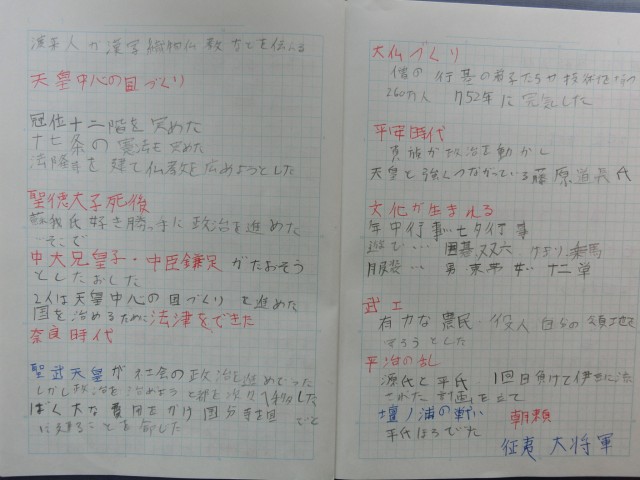 渡来人が漢字織物仏教などを伝える
天皇中心の国づくり
冠位十二階を定めた
十七条の憲法を定めた
法隆寺を建て仏教を広めようとした
聖徳太子死後
蘇我氏好き勝っ手に政治を進めた
そこで
中大兄皇子・中臣鎌足がたおそう
としたおした
2人は天皇中心の国づくりを進めた
国を治めるために法津をできた
奈良時代
聖武天皇が社会の政治を進めて
しかし政治を治めようと都を次々
ばく大な費用をかけ国分寺を国
に建ることを命した
大仏づくり
僧の行基の弟子たちが技術
260万人 752年に完気した
平安時代
貴族が政治を動かし
天皇と強くつながっている藤原道長氏
文化が生まれる
年中行事…七夕行事
遊び… 囲碁双六 けまり、乗馬
服装… 男 束帯 女… 十二単
武士
有力な農民 役人 自らの領地を
そうとした
平治の乱
源氏と平氏 1回目負けて伊豆に流
された 計画を立て
壇ノ浦の戦い
平氏ほろびた
朝頼
征夷大将軍